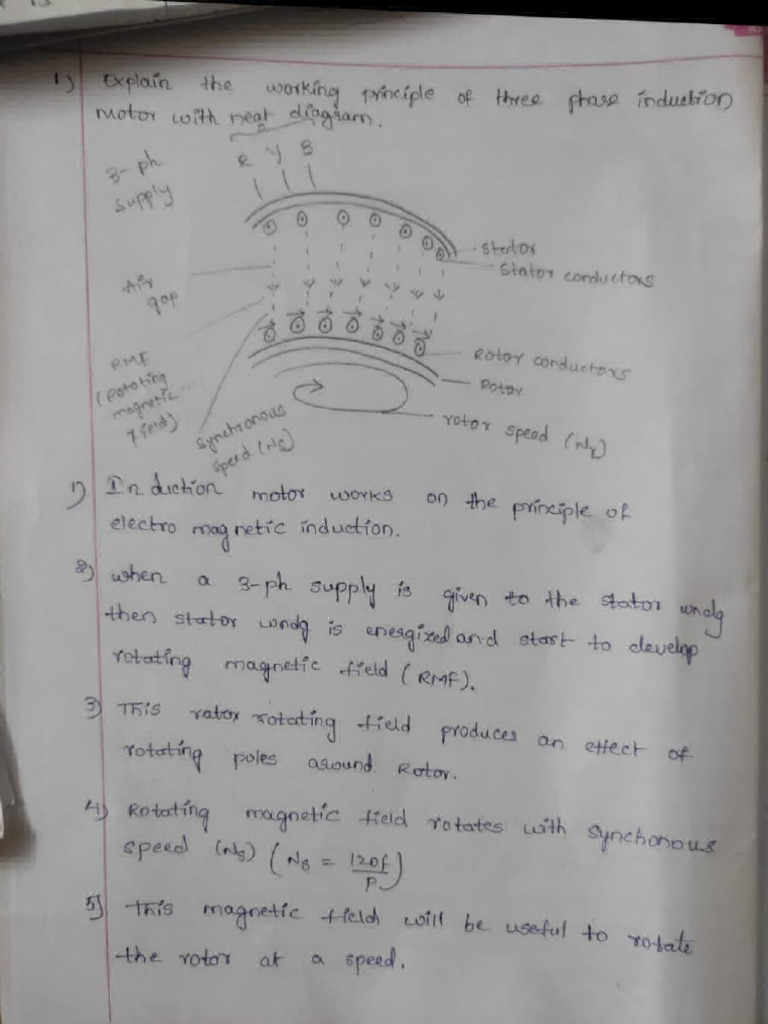 1) Explain the working principle of three phase induction
motor with neat diagram.
3-ph
supply
R Y B
stator
stator conductors
Air
gap
Rotor conductors
Rotor
RMF
(Rotating
magnetic
field)
synchronous
speed (Ns)
rotor speed (Nr)
1) Induction motor works on the principle of
electro magnetic induction.
2) when a 3-ph supply is given to the stator wndg
then stator wndg is energized and start to develop
rotating magnetic field (RMF).
3) This rotor rotating field produces an effect of
rotating poles around Rotor.
4) Rotating magnetic field rotates with synchonous
speed (Ns) (Ns = 120f/P)
5) This magnetic field will be useful to rotate
the rotor at a speed.